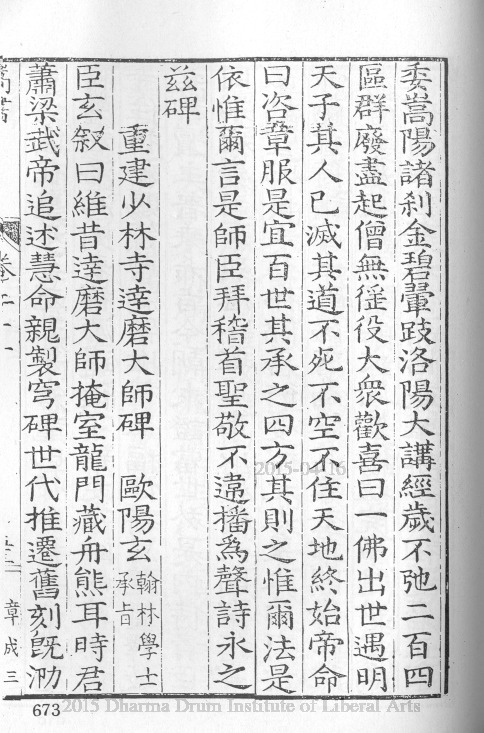 委嵩陽諸刹金碧翬跂洛陽大講經歲不弛二百四
區群廢盡起僧無徭役大衆歡喜曰一佛出世遇明
天子其人已滅其道不死不空不住天地終始帝命
曰咨章服是宜百世其承之四方其則之惟爾法是
依惟爾言是師臣拜稽首聖敬不違播爲聲詩永之
茲碑
重建少林寺達磨大師碑 歐陽玄 翰林學士承旨
臣玄叙曰維昔達磨大師掩室龍門藏舟熊耳時君
蕭梁武帝追述慧命親製穹碑世代推遷舊刻旣泐
卷二十一
章成三
673
2015-04-16
2015 Dharma Drum Institute of Liberal Arts